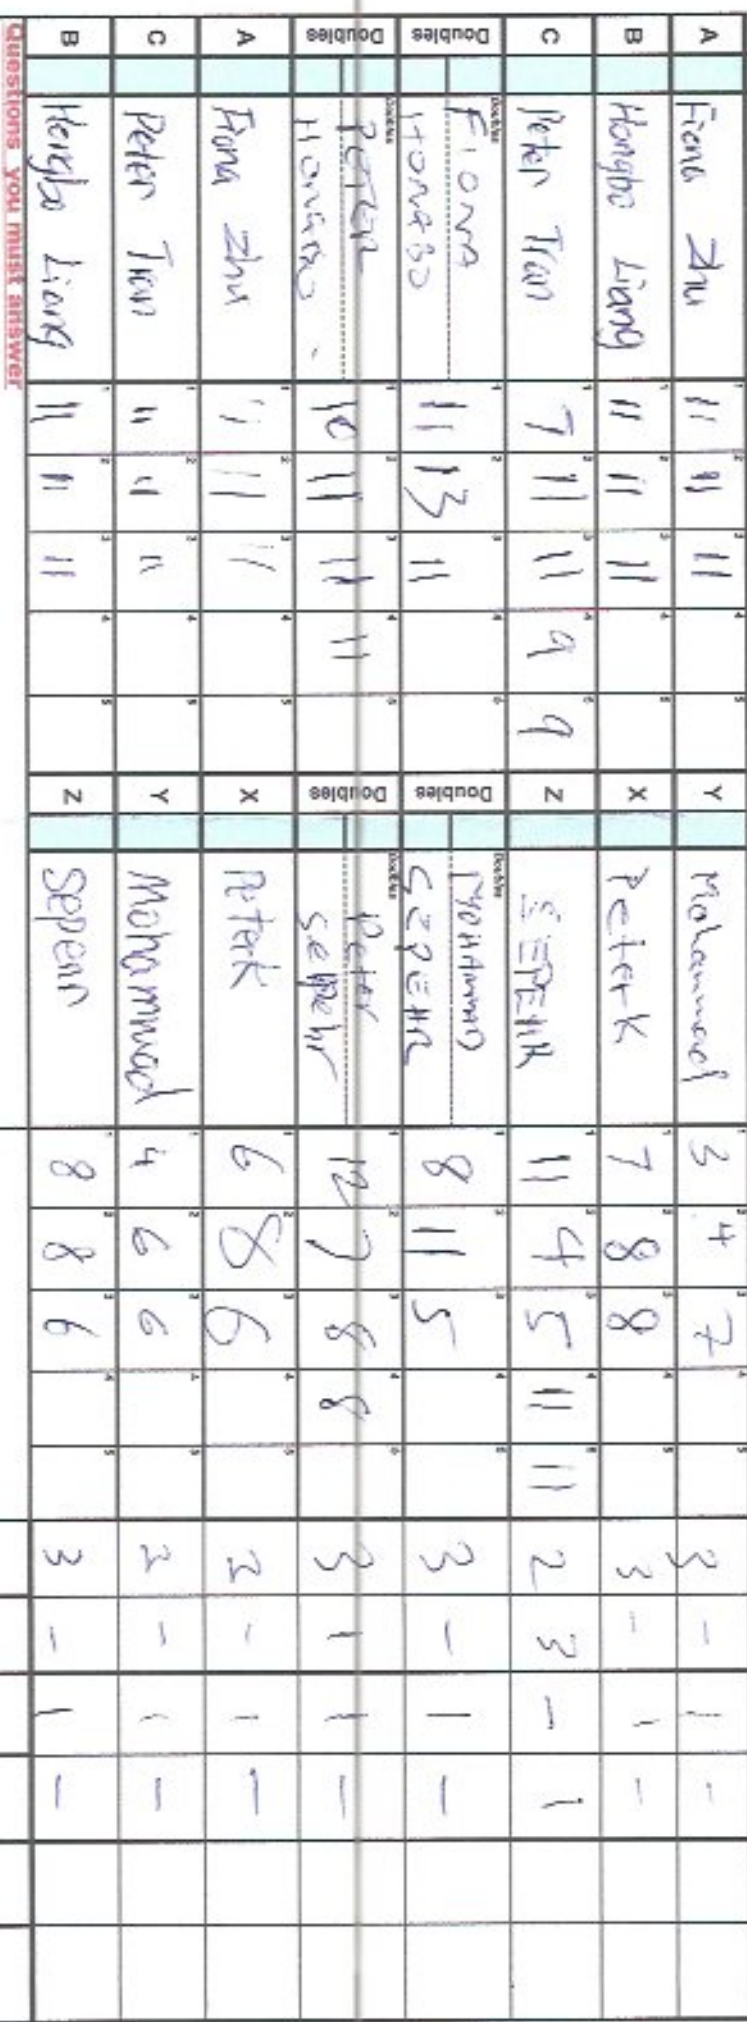 A Fiona Zhu 11 11 11 Y Mohammad 3 4 7 3 - 1 -
B Hongbo Liang 11 11 11 X Peter K 7 8 8 3 - 1 -
C Peter Tran 7 11 11 9 9 Z SEPEHR 11 4 5 11 11 2 3 - 1
Doubles FIONA HONGBO 11 13 11 Doubles MOHAMMAD SEPEHR 8 11 5 3 - 1 -
Doubles PETER HONGBO 10 11 11 11 Doubles Peter Sepehr 12 7 8 8 3 1 1 -
A Fiona Zhu 11 11 11 X Peter K 6 8 6 3 - 1 -
C Peter Tran 11 11 11 Y Mohammad 4 6 6 3 - 1 -
B Hongbo Liang 11 11 11 Z Sepehr 8 8 6 3 - 1 -
Questions you must answer